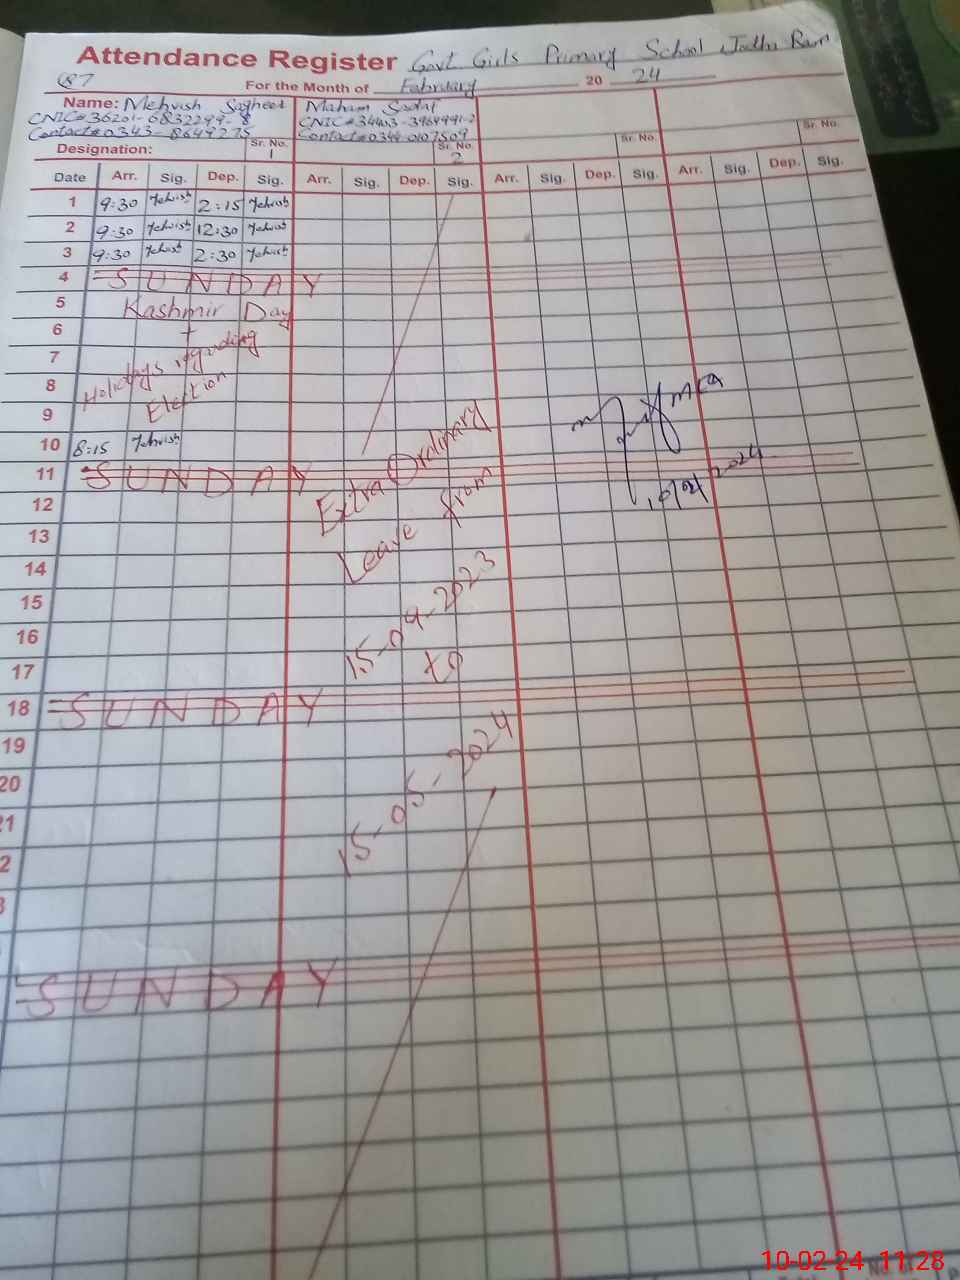 Attendance Register Govt Girls Primary School Jodhu Ram
87 For the Month of February 20 24
Name: Mehvish Sagheer Maham Sadaf
CNIC# 36201-6832299-8 CNIC# 34403-3969991-2
Contact# 0343-8649275 Contact# 0344-0107509
Designation: Sr. No. 1 Sr. No. 2 Sr. No. Sr. No.
Date Arr. Sig. Dep. Sig. Arr. Sig. Dep. Sig. Arr. Sig. Dep. Sig. Arr. Sig. Dep. Sig.
1 9:30 Mehvish 2:15 Mehvish
2 9:30 Mehvish 12:30 Mehvish
3 9:30 Mehvish 2:30 Mehvish
4 SUNDAY
5 Kashmir Day
6 +
7 Holidays regarding
8 Election
9
10 8:15 Mehvish
11 SUNDAY
Extra Ordinary
12 Leave from
13
14
15 15-09-2023
16 to
17
18 SUNDAY
19
20 15-05-2024
21
2
3
SUNDAY
MEA
10/02/2024
10-02-24 11:28